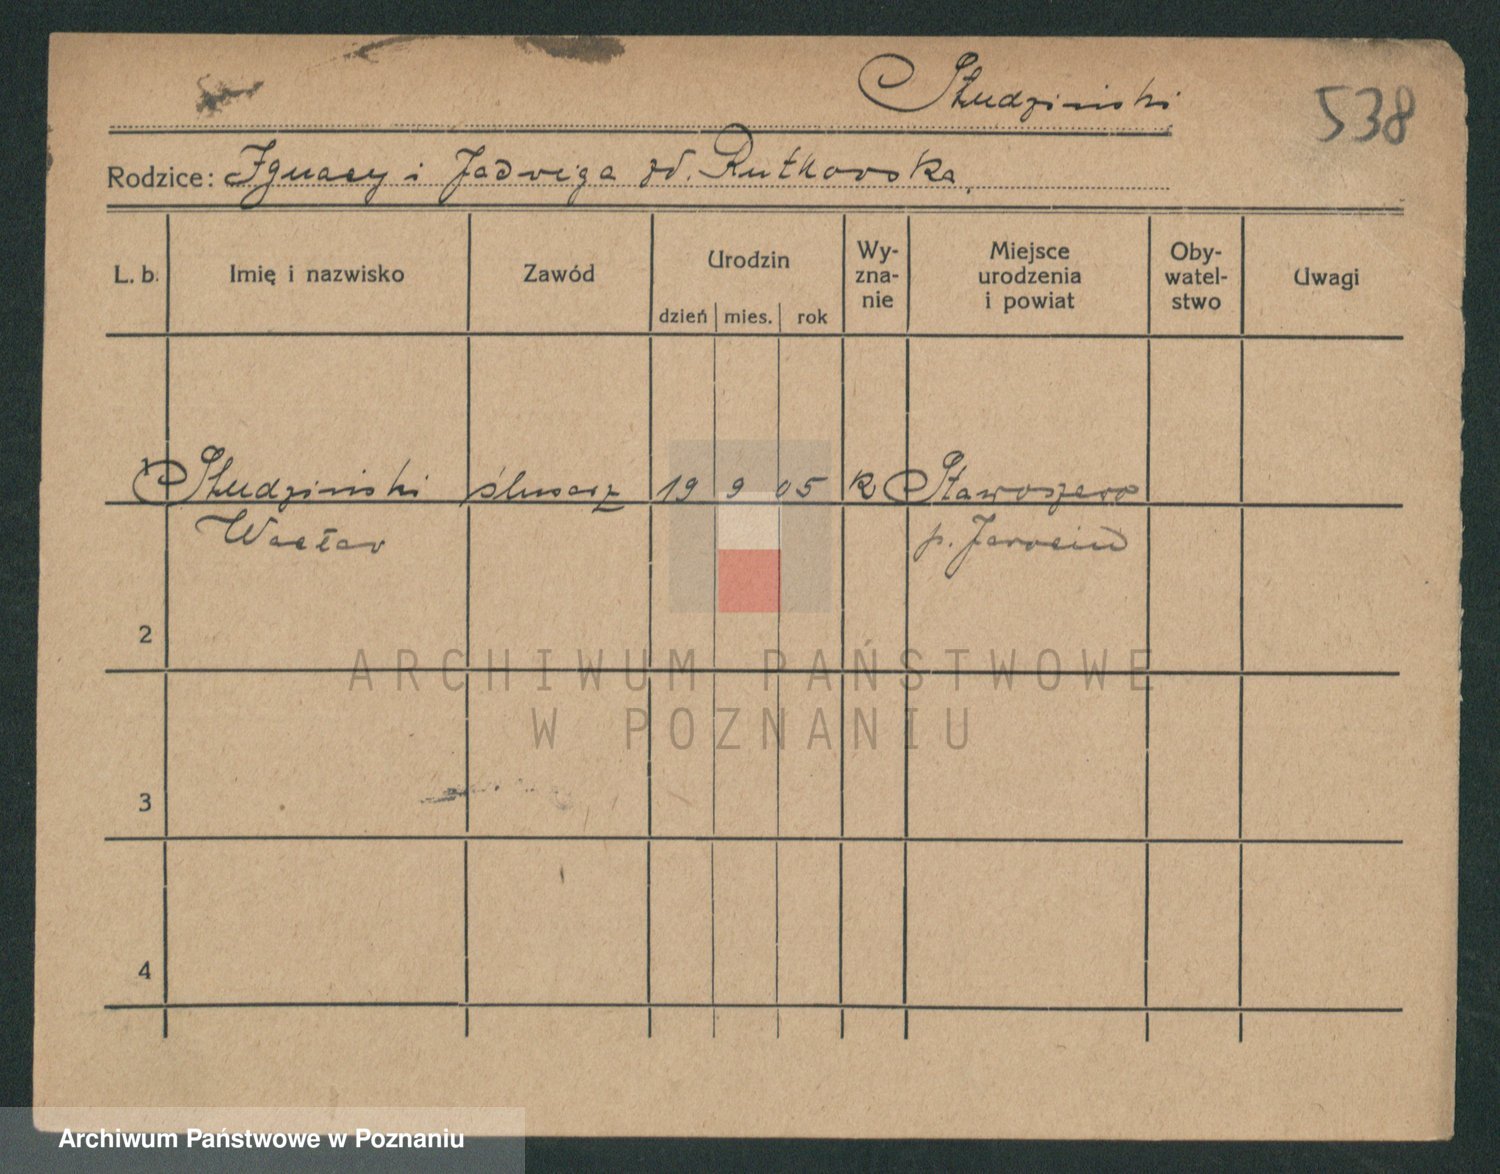 Studziński
538
Rodzice: Ignacy i Jadwiga zd. Rutkowska.
L. b. Imię i nazwisko Zawód Urodzin Wy-zna-nie Miejsce urodzenia i powiat Oby-watel-stwo Uwagi
dzień mies. rok
1 Studziński ślusarz 19 9 05 k
Wacław p. Jarocin
2
3
4
ARCHIWUM PAŃSTWOWE
W POZNANIU
Archiwum Państwowe w Poznaniu